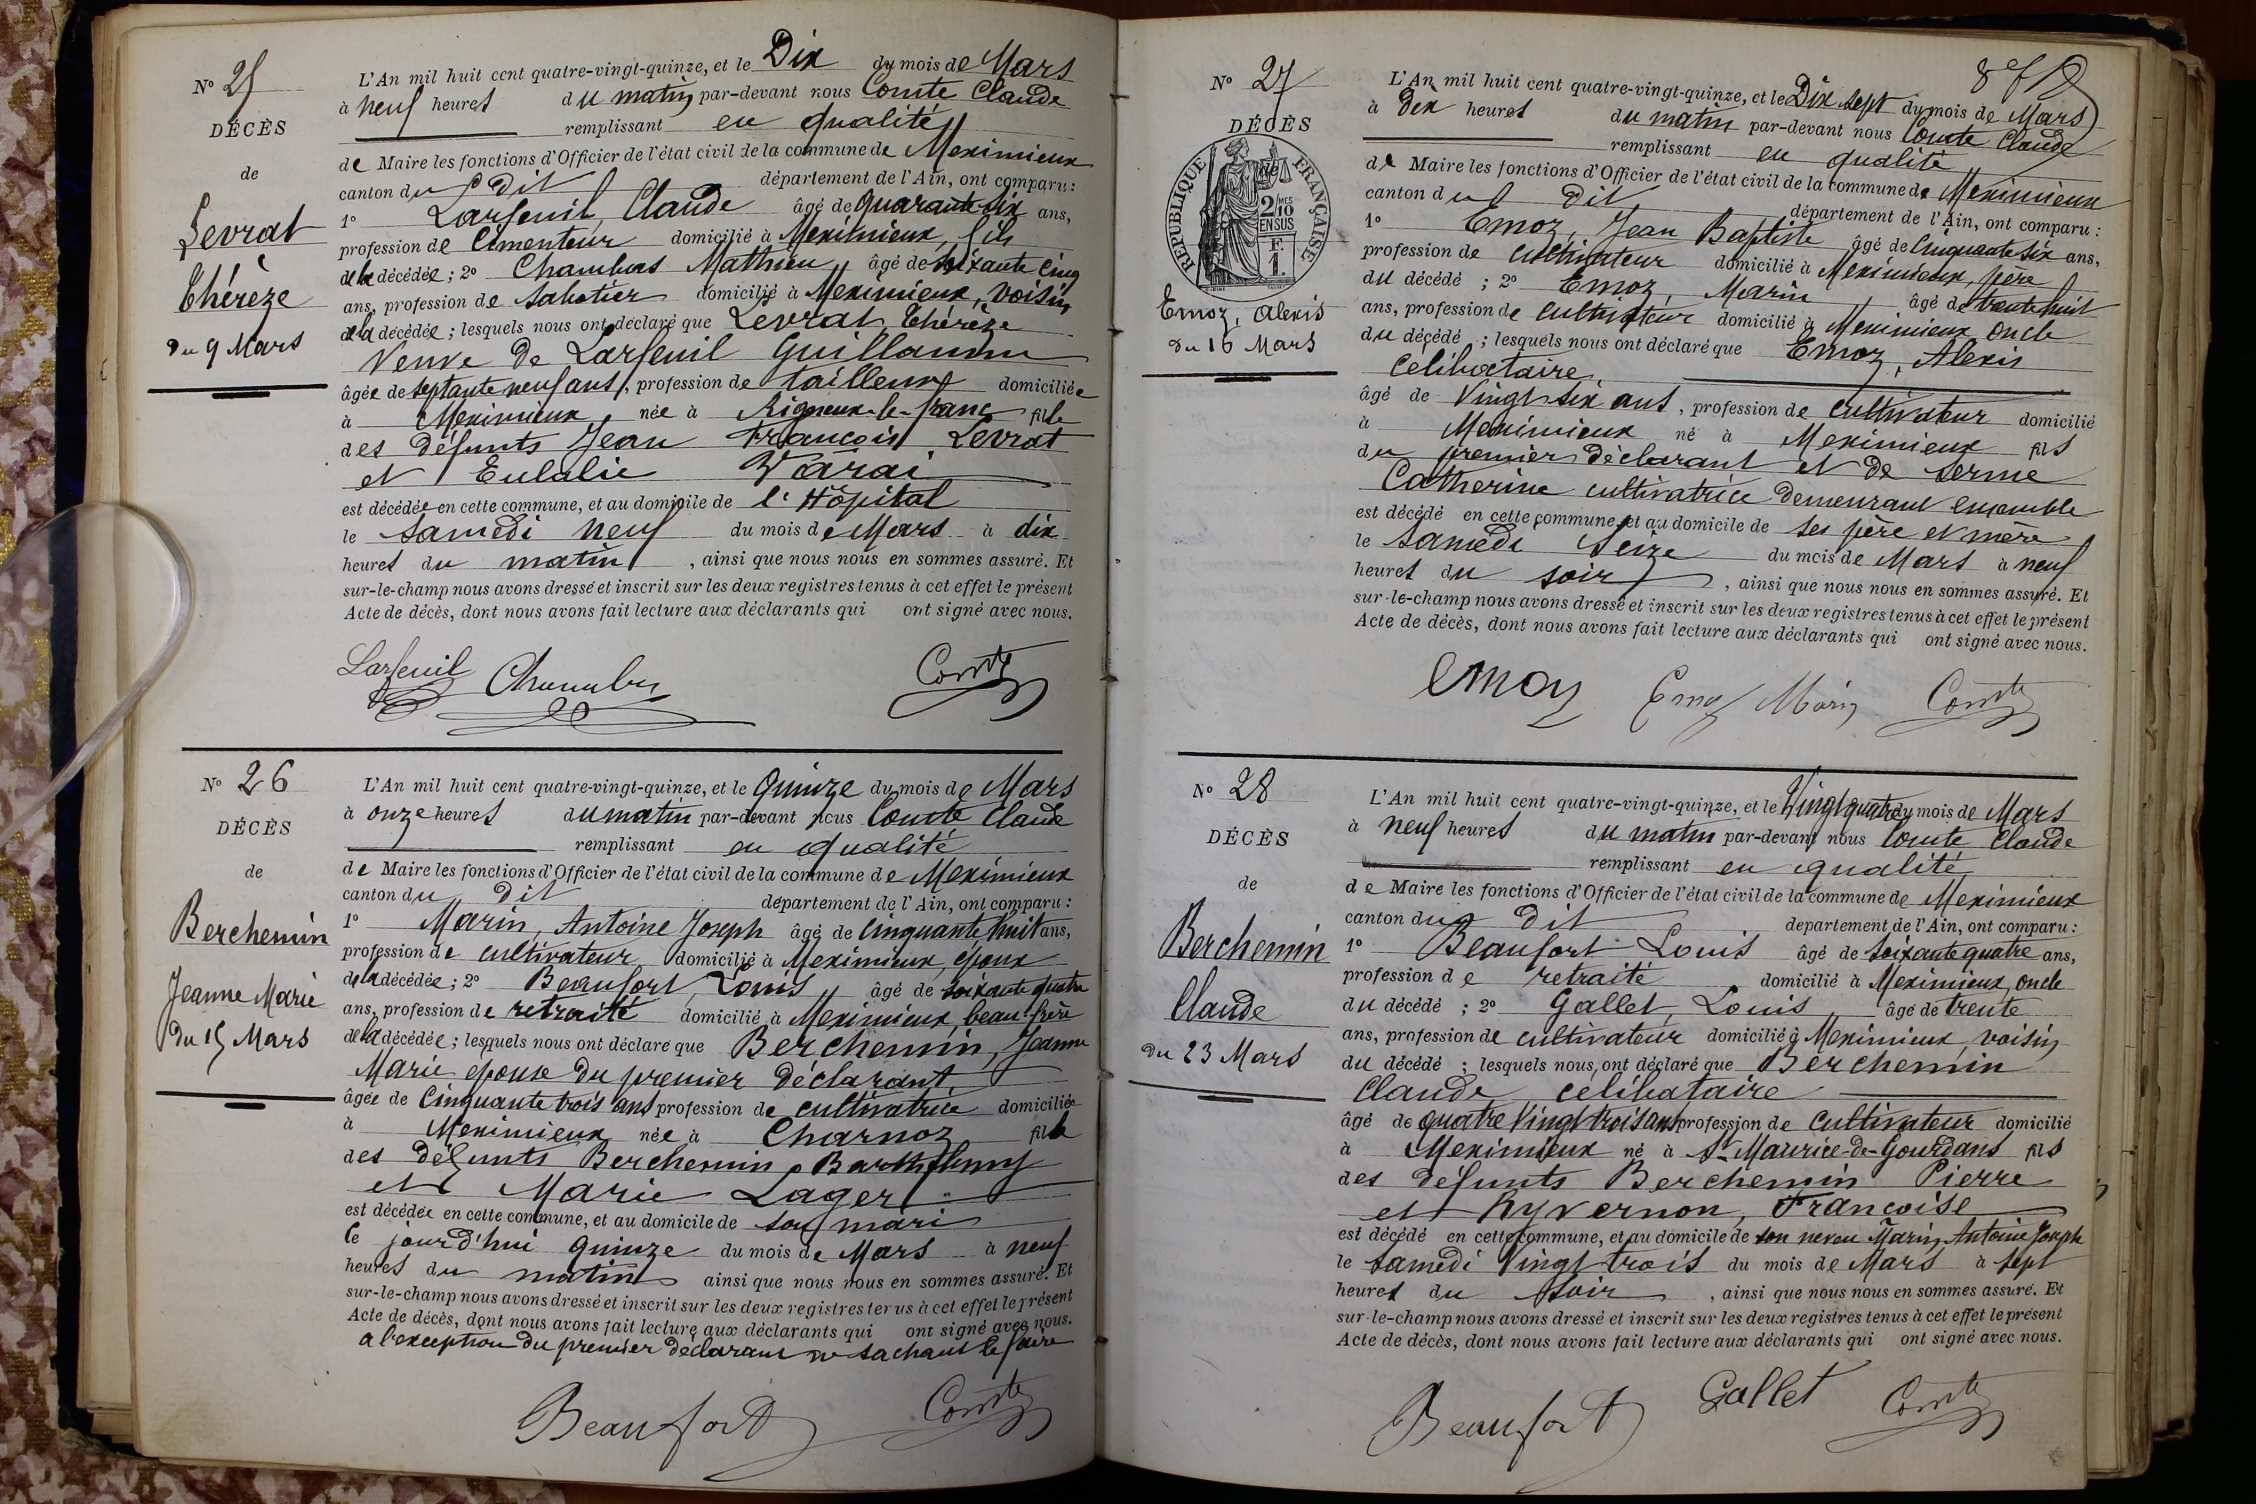 N° 25
DÉCÈS
de
Levrat
Thérèze
du 9 Mars
L'An mil huit cent quatre-vingt-quinze, et le Dix du mois de Mars
à neuf heures du matin par-devant nous Comte Claude
remplissant en qualité
de Maire les fonctions d'Officier de l'état civil de la commune de Meximieux
canton du dit département de l'Ain, ont comparu:
1° Larfeuil, Claude âgé de quarante six ans,
profession de Cimenteur domicilié à Meximieux, fils
de la décédée; 2° Chambas Matthieu, âgé de soixante cinq
ans, profession de sabotier domicilié à Meximieux, voisin
de la décédée; lesquels nous ont déclaré que Levrat, Thérèze
Veuve de Larfeuil Guillaume
âgée de septante neuf ans, profession de tailleuse domiciliée
à Meximieux, née à Rigneux-le-franc fille
des défunts Jean François Levrat
et Eulalie Warai
est décédée en cette commune, et au domicile de l'Hôpital
le samedi neuf du mois de Mars à dix
heures du matin, ainsi que nous nous en sommes assuré. Et
sur-le-champ nous avons dressé et inscrit sur les deux registres tenus à cet effet le présent
Acte de décès, dont nous avons fait lecture aux déclarants qui ont signé avec nous.
Larfeuil Comte
N° 26
DÉCÈS
de
Berchemin
Jeanne Marie
du 15 Mars
L'An mil huit cent quatre-vingt-quinze, et le Quinze du mois de Mars
à onze heures du matin par-devant nous Comte Claude
remplissant en qualité
de Maire les fonctions d'Officier de l'état civil de la commune de Meximieux
canton du dit département de l'Ain, ont comparu:
1° Marin, Antoine Joseph âgé de Cinquante huit ans,
profession de cultivateur domicilié à Meximieux, époux
de la décédée; 2° Beaufort, Louis, âgé de soixante quatre
ans, profession de retraité domicilié à Meximieux, beau frère
de la décédée; lesquels nous ont déclaré que Berchemin, Jeanne
Marie epouse du premier déclarant
âgée de Cinquante trois ans profession de cultivatrice domiciliée
à Meximieux née à Charnoz fille
des défunts Berchemin, Barthélemy
et Marie Lager
est décédée en cette commune, et au domicile de son mari
le jourd'hui quinze du mois de Mars à neuf
heures du matin ainsi que nous nous en sommes assuré. Et
sur-le-champ nous avons dressé et inscrit sur les deux registres tenus à cet effet le présent
Acte de décès, dont nous avons fait lecture aux déclarants qui ont signé avec nous.
a l'exception du premier déclarant ne sachant le faire
Beaufort Comte
N° 27
DÉCÈS
RÉPUBLIQUE FRANÇAISE
2/10 MES
EN SUS
F.
1.
Emoz, Alexis
du 16 Mars
L'An mil huit cent quatre-vingt-quinze, et le Dix sept du mois de Mars
à Dix heures du matin par-devant nous Comte Claude
remplissant en qualité
de Maire les fonctions d'Officier de l'état civil de la commune de Meximieux
canton du dit département de l'Ain, ont comparu:
1° Emoz, Jean Baptiste âgé de Cinquante six ans,
profession de cultivateur domicilié à Meximieux, père
du décédé; 2° Emoz, Marin, âgé de trente huit
ans, profession de cultivateur domicilié à Meximieux oncle
du décédé; lesquels nous ont déclaré que Emoz, Alexis
Célibataire
âgé de Vingt six ans, profession de cultivateur domicilié
à Meximieux né à Meximieux fils
du premier déclarant et de Serme
Catherine cultivatrice demeurant ensemble
est décédé en cette commune, et au domicile de ses père et mère
le samedi seize du mois de Mars à neuf
heures du soir, ainsi que nous nous en sommes assuré. Et
sur-le-champ nous avons dressé et inscrit sur les deux registres tenus à cet effet le présent
Acte de décès, dont nous avons fait lecture aux déclarants qui ont signé avec nous.
Emoz Emoz Marin Comte
N° 28
DÉCÈS
de
Berchemin
Claude
du 23 Mars
L'An mil huit cent quatre-vingt-quinze, et le Vingt quatre du mois de Mars
à neuf heures du matin par-devant nous Comte Claude
remplissant en qualité
de Maire les fonctions d'Officier de l'état civil de la commune de Meximieux
canton du dit departement de l'Ain, ont comparu:
1° Beaufort Louis âgé de soixante quatre ans,
profession de retraité domicilié à Meximieux, oncle
du décédé; 2° Gallet, Louis, âgé de trente
ans, profession de cultivateur domicilié à Meximieux, voisin
du décédé; lesquels nous ont déclaré que Berchemin
Claude, célibataire
âgé de quatre Vingt trois ans profession de cultivateur domicilié
à Meximieux né à St Maurice-de-Gourdans fils
des défunts Berchemin Pierre
et Ryvernon, Françoise
est décédé en cette commune, et au domicile de son neveu Marin, Antoine Joseph
le samedi Vingt trois du mois de Mars à sept
heures du soir, ainsi que nous nous en sommes assuré. Et
sur-le-champ nous avons dressé et inscrit sur les deux registres tenus à cet effet le présent
Acte de décès, dont nous avons fait lecture aux déclarants qui ont signé avec nous.
Beaufort Gallet Comte